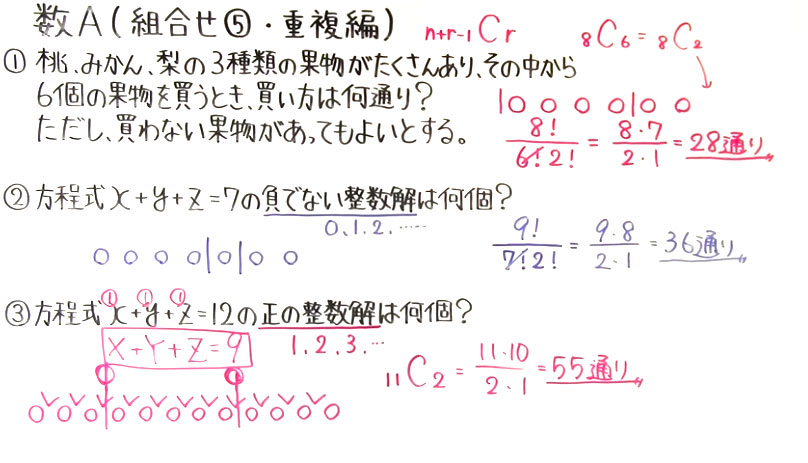 数A(組合せ⑤・重複編)
n+r-1Cr
8C6 = 8C2
① 桃、みかん、梨の3種類の果物がたくさんあり、その中から
6個の果物を買うとき、買い方は何通り?
ただし、買わない果物があってもよいとする。
|○ ○ ○ ○|○ ○
8!/6!2! = 8・7/2・1 = 28通り〃
② 方程式x+y+z=7の負でない整数解は何個?
0、1、2、……
○ ○ ○ ○|○|○ ○
9!/7!2! = 9・8/2・1 = 36通り〃
① ① ①
③ 方程式x+y+z=12の正の整数解は何個?
X+Y+Z=9
1、2、3、…
① ①
11C2 = 11・10/2・1 = 55通り〃
○∨○∨○∨○∨○∨○∨○∨○∨○∨○∨○∨○